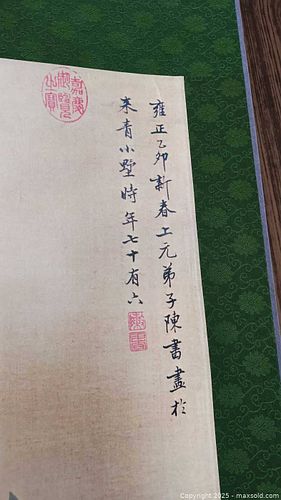 雍正乙卯新春上元弟子陳書畫於
来青小墅時年七十有六
嘉慶御覽之寶
Copyright 2025 - maxsold.com